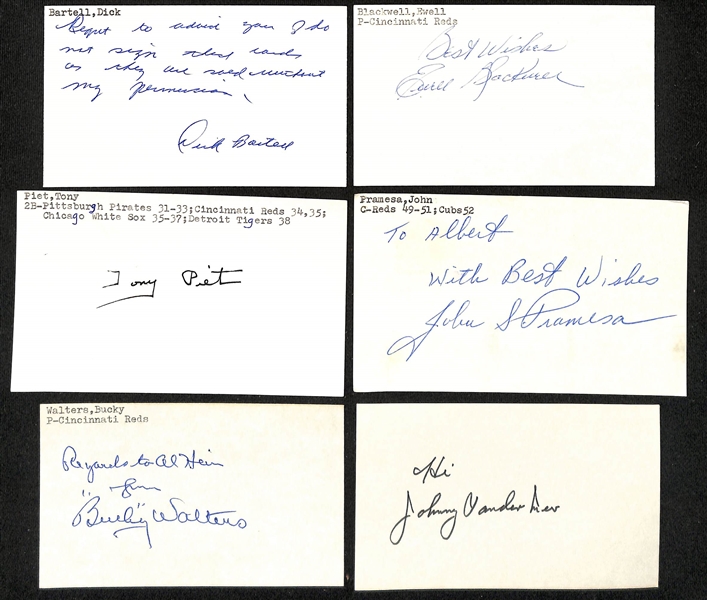 Bartell,Dick
Regret to advise you I do
not sign these cards
as they are sold without
my permission.
Dick Bartell
Blackwell,Ewell
P-Cincinnati Reds
Best Wishes
Ewell Blackwell
Piet,Tony
2B-Pittsburgh Pirates 31-33;Cincinnati Reds 34,35;
Chicago White Sox 35-37;Detroit Tigers 38
Tony Piet
Pramesa,John
C-Reds 49-51;Cubs52
To Albert
With Best Wishes
John S Pramesa
Walters,Bucky
P-Cincinnati Reds
Regards to Al Hein
from
"Bucky" Walters
Hi
Johnny Vander Meer